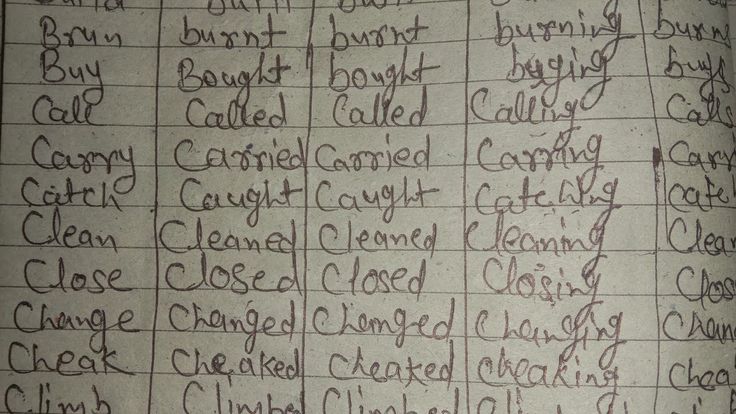 Brun burnt burnt burning burns
Buy Bought bought buying buys
Call Called Called Calling Calls
Carry Carried Carried Carring Carry
Catch Caught Caught Catching
Clean Cleaned Cleaned Cleaning Clean
Close Closed Closed Closing Clos
Change Changed Changed Changing Chan
Cheak Cheaked Cheaked Cheaking Chea
Climb Climbed Climbed